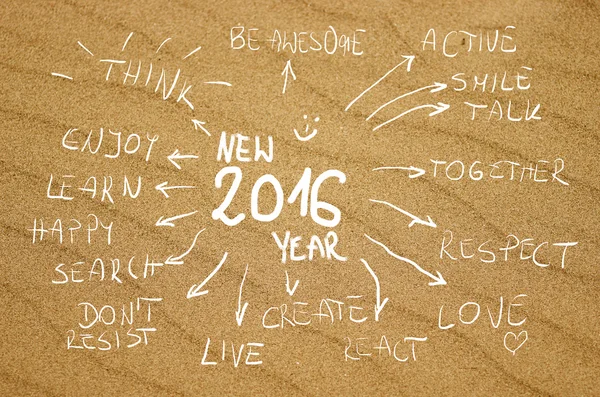 BE AWESOME
ACTIVE
THINK
SMILE
TALK
ENJOY
NEW
2016
YEAR
TOGETHER
LEARN
HAPPY
RESPECT
SEARCH
DON'T
RESIST
CREATE
LOVE
LIVE
REACT